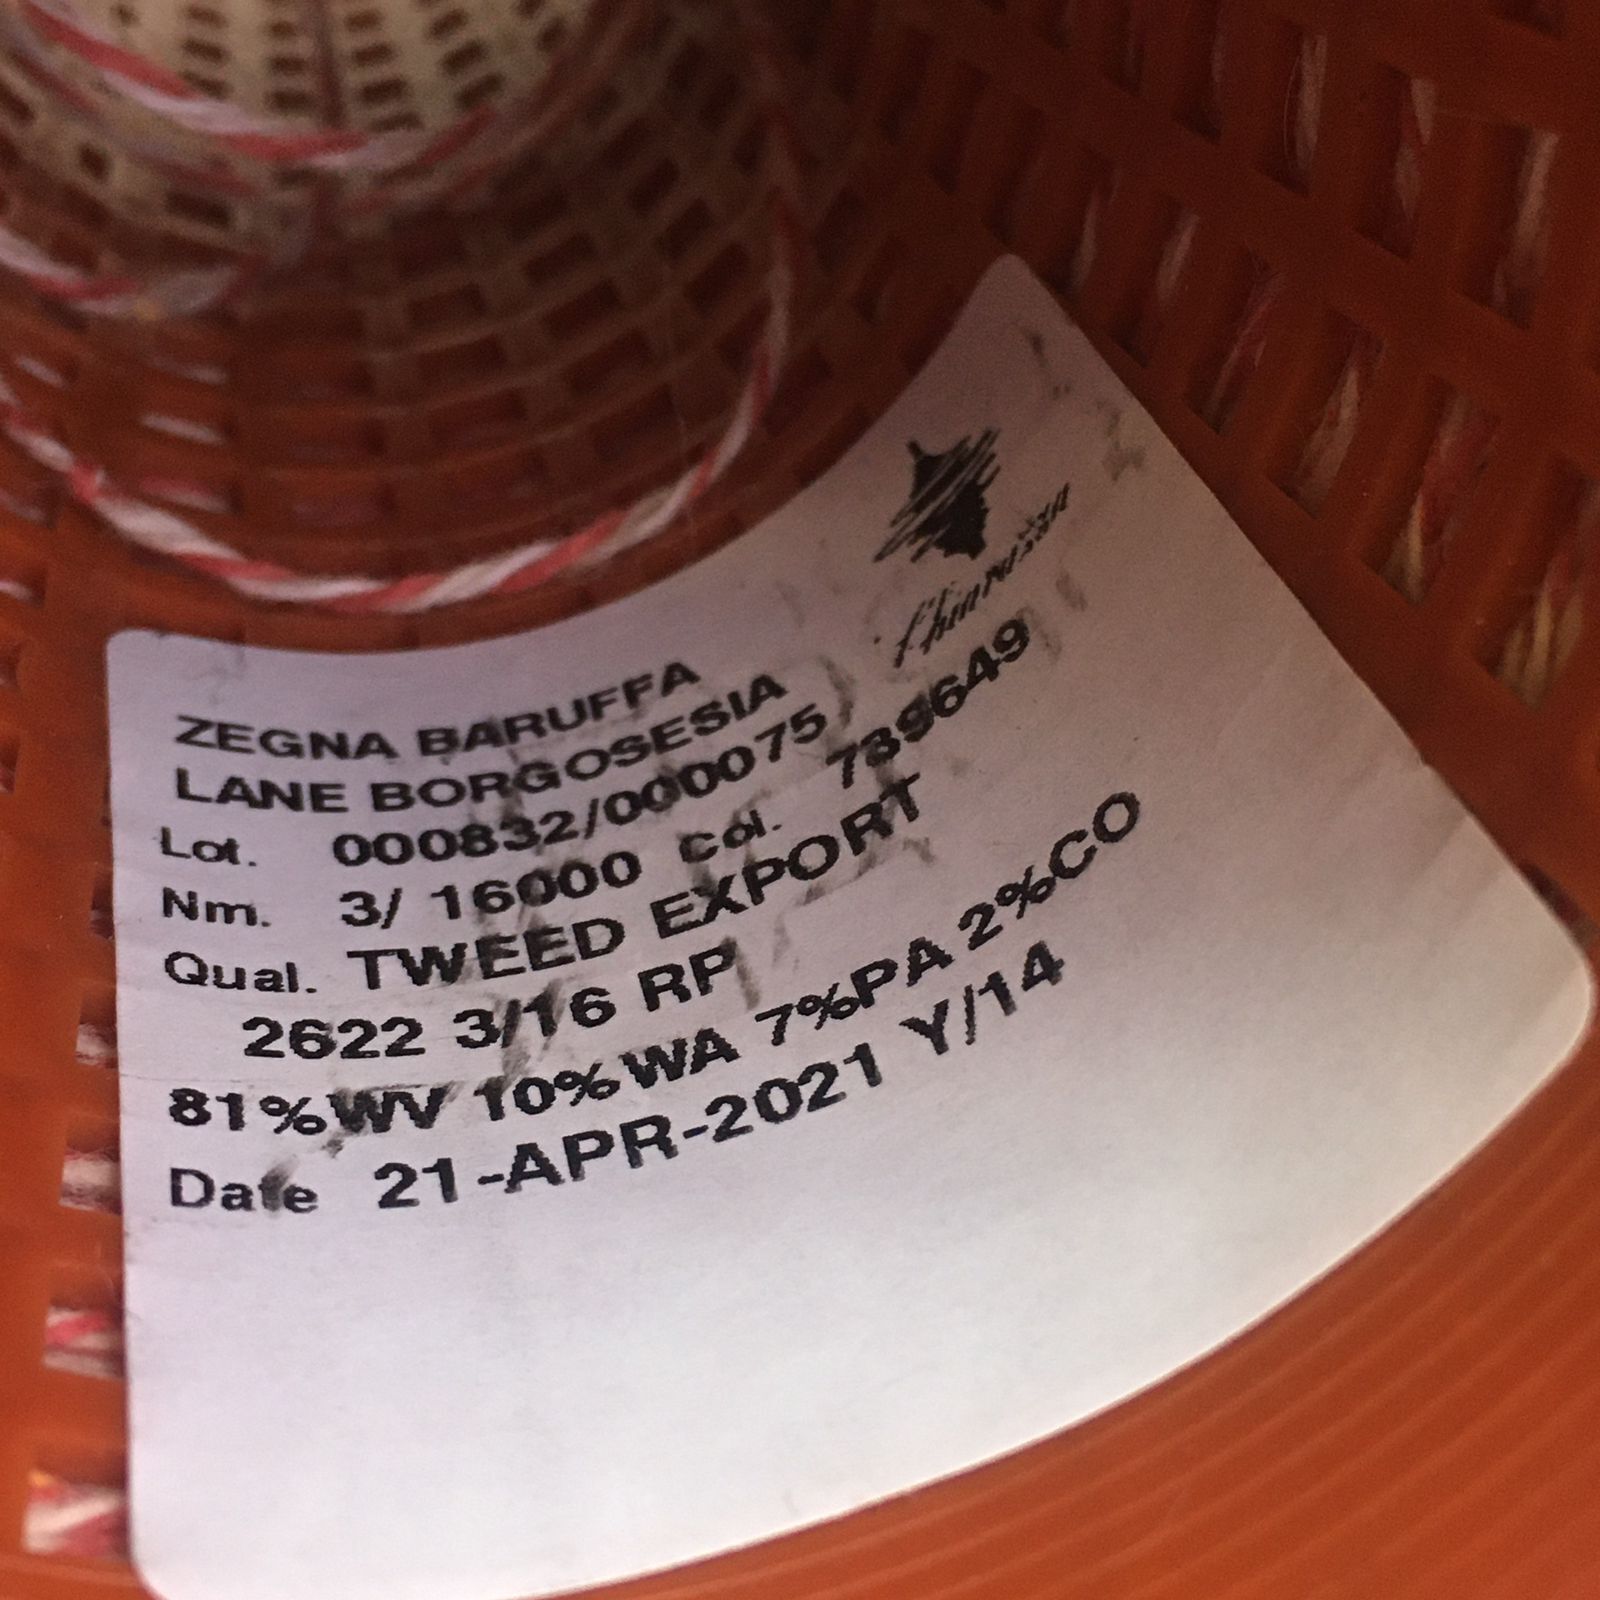 ZEGNA BARUFFA
LANE BORGOSESIA
Lot. 000832/000075
Nm. 3/ 16000 col. 739649
Qual. TWEED EXPORT
2622 3/16 RP
81%WV 10%WA 7%PA 2%CO
Date 21-APR-2021 Y/14